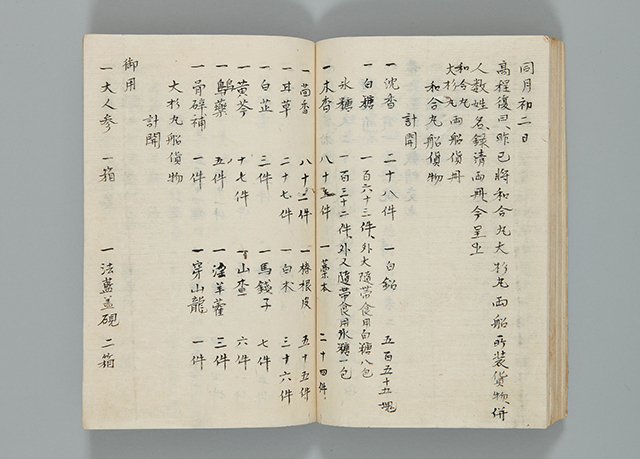 同月初二日
高程復回、昨已將和合丸大杉丸両船所装貨物、併
人数姓名録清両冊、今呈上
和合丸
大杉丸両船貨冊
和合丸船貨物
計開
一沈香 二十八件 一白鉛 五百五十五塊
一白糖 一百六十三件、外大隨帶食用白糖八包
一氷糖 一百三十二件、外又隨帶食用氷糖一包
一木香 八十五件 一藁本 二十四件
一茴香 八十二件 一椿根皮 五十五件
一甘草 二十七件 一白术 三十六件
一白芷 三件 一馬錢子 七件
一黄芩 十七件 一山查 六件
一烏藥 五件 一淫羊藿 三件
一骨碎補 一件 一穿山龍 一件
大杉丸船貨物
計開
御用
一大人参 一箱 一法藍盖硯 二箱